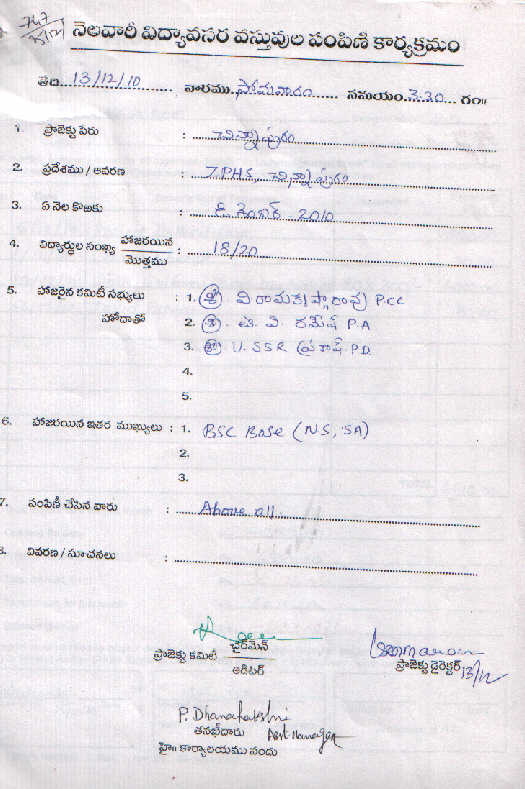 747
13/12
నెలవారీ విద్యావసర వస్తువుల పంపిణి కార్యక్రమం
తేది 13/12/10 వారము సోమవారం సమయం 3-30 గం॥
1. ప్రాజెక్టు పేరు : చిన్నాపురం
2. ప్రదేశము / ఆవరణ : ZPHS, చిన్నాపురం
3. ఏ నెల కొఱకు : డిశెంబర్ 2010
4. విద్యార్థుల సంఖ్య హాజరయిన : 18/20
మొత్తము
5. హాజరైన కమిటీ సభ్యులు : 1. శ్రీ వి రామకృష్ణారావు P.CC
హోదాతో 2. శ్రీ. టి. వి. రమేష్ P.A
3. శ్రీ U. SSR ప్రకాష్ P.D.
4.
5.
6. హాజరయిన ఇతర ముఖ్యులు : 1. BSC Base (NS, SA)
2.
3.
7. పంపిణీ చేసిన వారు : Above all
8. వివరణ / సూచనలు :
ప్రాజెక్టు కమిటీ చైర్‌మెన్
ఆడిటర్
ప్రాజెక్టు డైరెక్టర్ 13/12
P. Dhanalakshmi
తనఖీదారు Asst Manager
హె॥ కార్యాలయము నందు